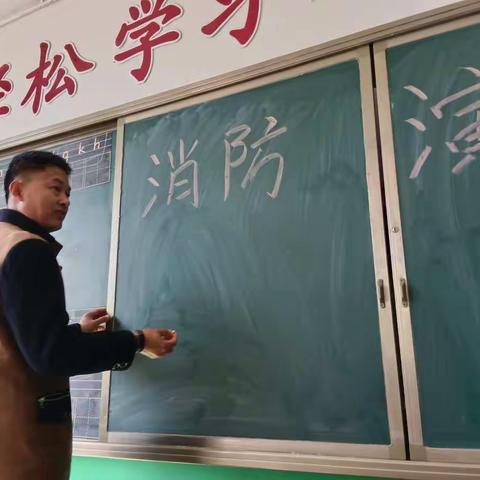 轻松学习
消防演
k h